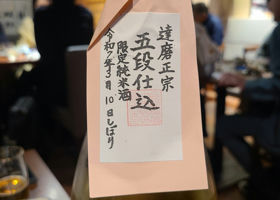 達磨正宗
五段仕込
限定純米酒
令和7年3月10日しぼり